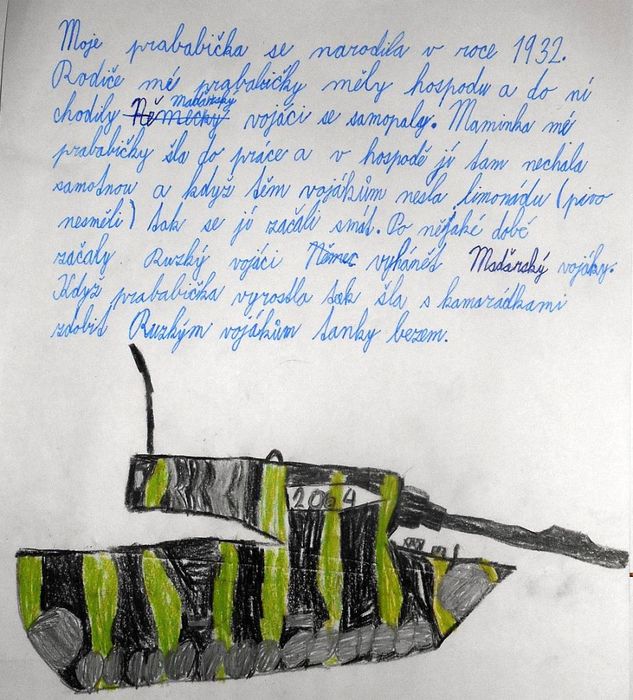 Moje prababička se narodila v roce 1932.
Rodiče mé prababičky měly hospodu a do ní
maďarsky
chodily Německy vojáci se samopaly. Maminka mé
prababičky šla do práce a v hospodě jí tam nechala
samotnou a když těm vojákům nesla limonádu (pivo
nesměli) tak se jí začáli smát. Po nějaké době
začaly Ruzký vojáci Němec vyhánět Maďarský vojáky.
Když prababička vyrostla tak šla s kamarádkami
zdobit Ruzkým vojákům tanky bezem.
2004